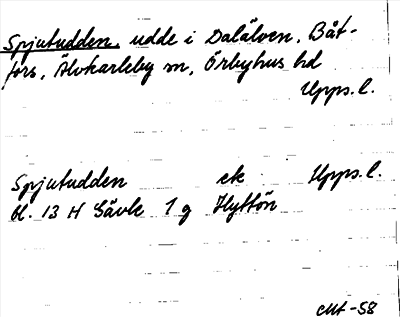 Spjutudden, udde i Dalälven, Båt-
fors, Älvkarleby sn, Örbyhus hd
Upps. l.
Spjutudden ek Upps. l.
bl. 13 H Gävle 1 g Hyttön
CMt -58